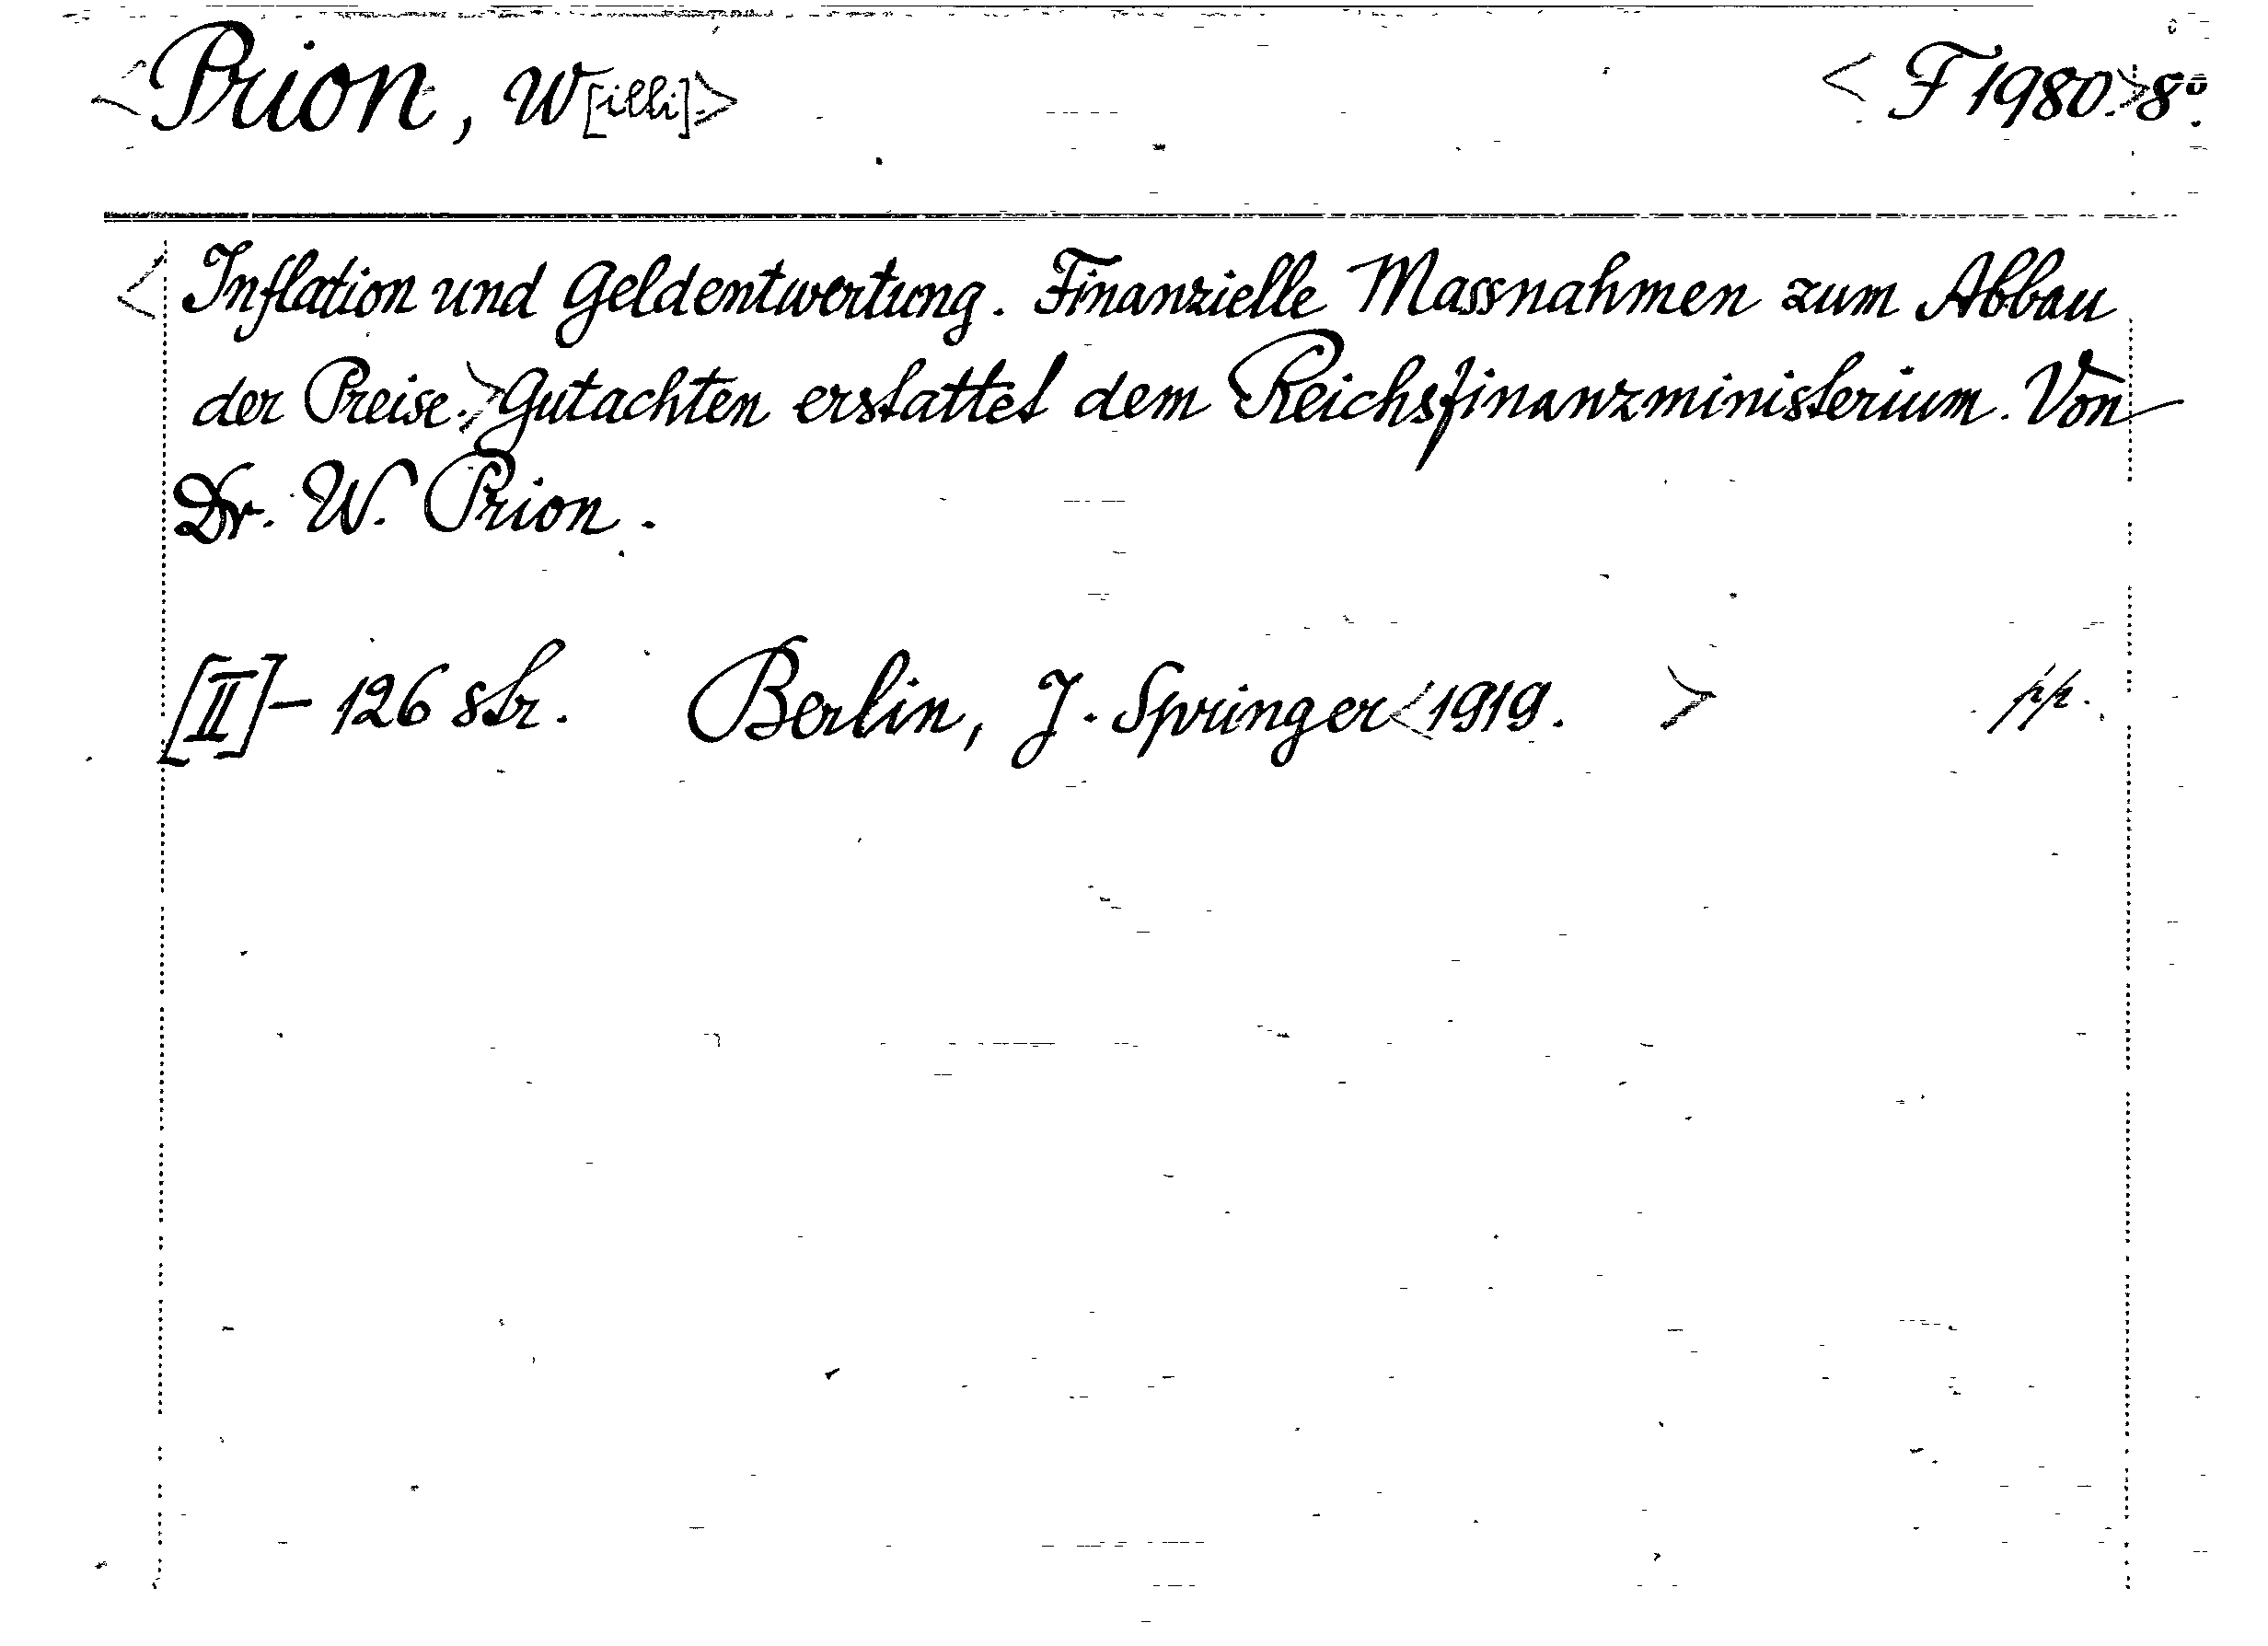 <Prion, W[illi]>
<F 1980.>8º.
<Inflation und Geldentwertung. Finanzielle Massnahmen zum Abbau
der Preise.> Gutachten erstattet dem Reichsfinanzministerium. Von
Dr. W. Prion.
[II] – 126 str. Berlin, J. Springer <1919. > pp.